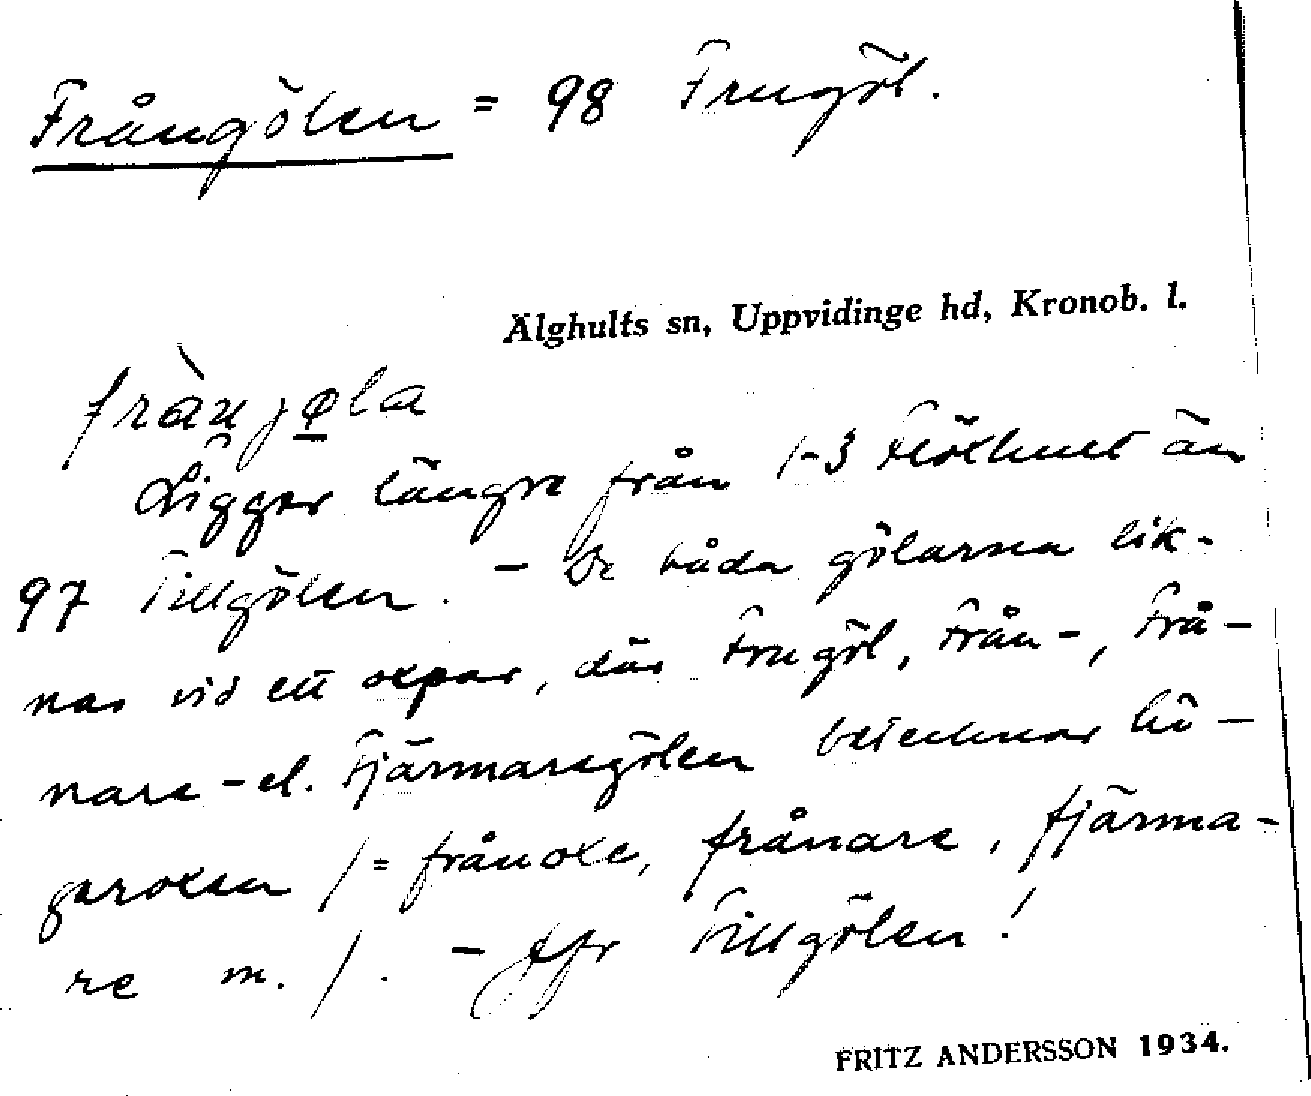 Frångölen = 98 Frugöl.
Älghults sn, Uppvidinge hd, Kronob. l.
frånjøla
Ligger längre från 1-3 Flöxhult än
97 Tillgölen. - De båda gölarna lik-
nas vid ett oxpar, där Frugöl, Från-, Frå-
nare- el. Fjärmaregölen betecknar hö-
geroxen /= frånoxe, frånare, fjärma-
re m./. - Jfr Tillgölen!
FRITZ ANDERSSON 1934.